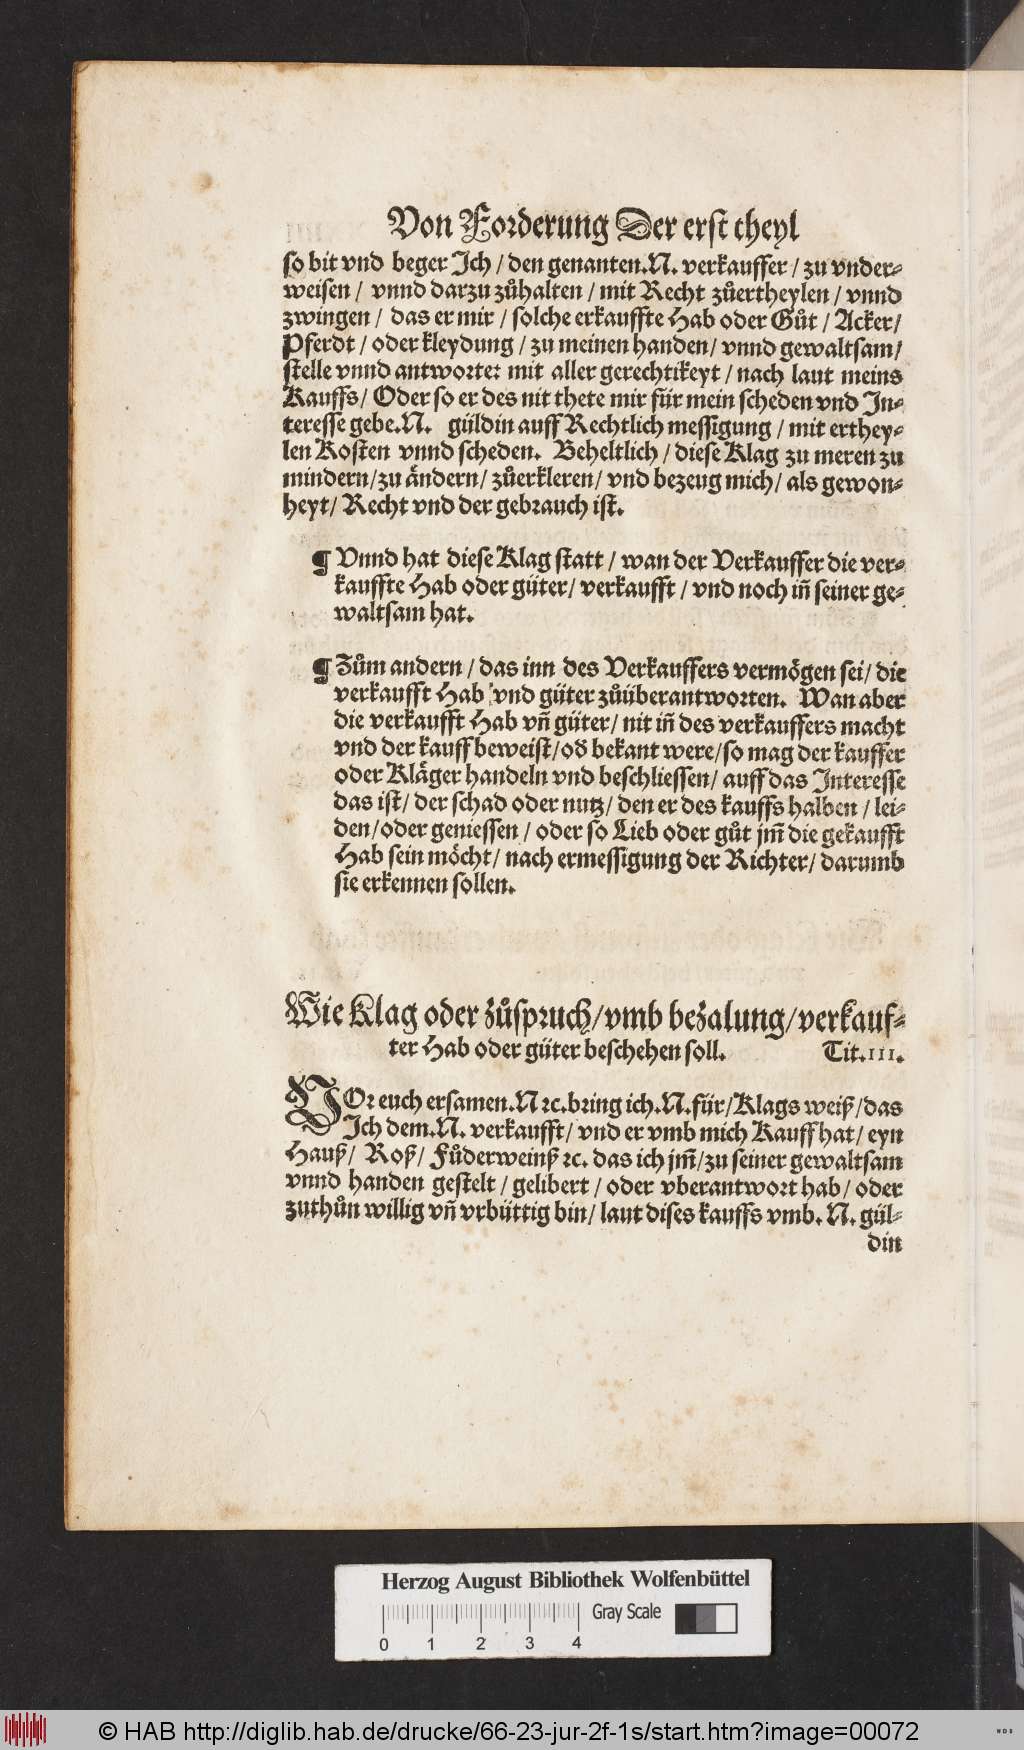 Von Forderung Der erst theyl
so bit vnd beger Ich / den genanten.N. verkauffer / zu vnder⸗
weisen / vnnd darzu zůhalten / mit Recht zůertheylen / vnnd
zwingen / das er mir / solche erkauffte Hab oder Gůt / Acker /
Pferdt / oder kleydung / zu meinen handen / vnnd gewaltsam /
stelle vnnd antworte: mit aller gerechtikeyt / nach laut meins
Kauffs / Oder so er des nit thete mir für mein scheden vnd In⸗
teresse gebe.N. güldin auff Rechtlich messigung / mit erthey⸗
len Kosten vnnd scheden. Beheltlich / diese Klag zu meren zu
mindern / zu ändern / zůerkleren / vnd bezeug mich / als gewon⸗
heyt / Recht vnd der gebrauch ist.
¶ Vnnd hat diese Klag statt / wan der Verkauffer die ver⸗
kauffte Hab oder güter / verkaufft / vnd noch iñ seiner ge⸗
waltsam hat.
¶ Zům andern / das inn des Verkauffers vermögen sei / die
verkaufft Hab vnd güter zůüberantworten. Wan aber
die verkaufft Hab vñ güter / nit iñ des verkauffers macht
vnd der kauff beweist / od̄ bekant were / so mag der kauffer
oder Kläger handeln vnd beschliessen / auff das Interesse
das ist / der schad oder nutz / den er des kauffs halben / lei⸗
den / oder geniessen / oder so Lieb oder gůt jm̃ die gekaufft
Hab sein möcht / nach ermessigung der Richter / darumb
sie erkennen sollen.
Wie Klag oder zůspruch / vmb bezalung / verkauf⸗
ter Hab oder güter beschehen soll. Tit.III.
VOr euch ersamen.N ꝛc. bring ich.N. für / Klags weiß / das
Ich dem.N. verkaufft / vnd er vmb mich Kauff hat / eyn
Hauß / Roß / Fůderweinß ꝛc. das ich jm̃ / zu seiner gewaltsam
vnnd handen gestelt / gelibert / oder vberantwort hab / oder
zuthůn willig vñ vrbüttig bin / laut dises kauffs vmb. N. gül⸗
din
Herzog August Bibliothek Wolfenbüttel
Gray Scale
0 1 2 3 4
© HAB http://diglib.hab.de/drucke/66-23-jur-2f-1s/start.htm?image=00072